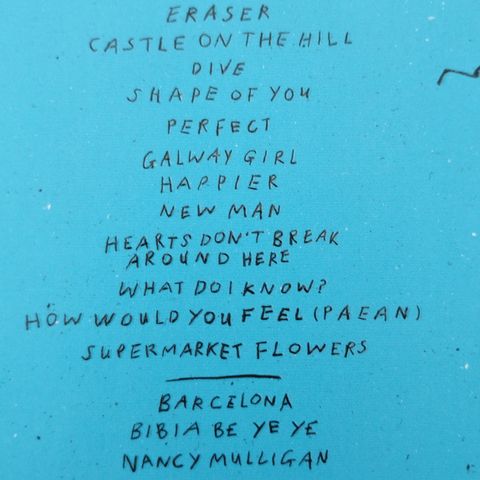 ERASER
CASTLE ON THE HILL
DIVE
SHAPE OF YOU
PERFECT
GALWAY GIRL
HAPPIER
NEW MAN
HEARTS DON'T BREAK
AROUND HERE
WHAT DO I KNOW?
HOW WOULD YOU FEEL (PAEAN)
SUPERMARKET FLOWERS
BARCELONA
BIBIA BE YE YE
NANCY MULLIGAN